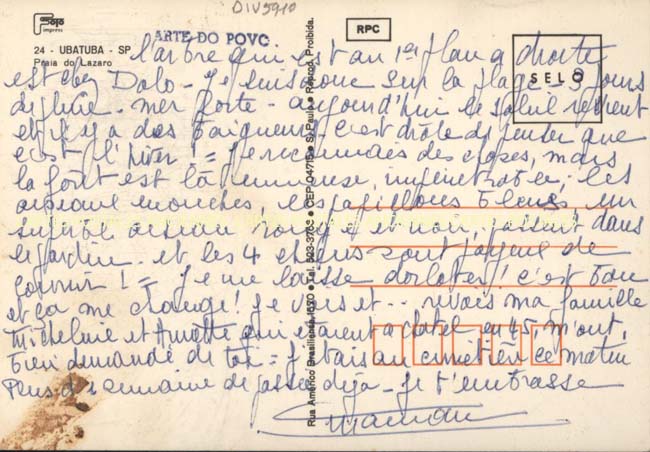 DIV5910
Foto impress
ARTE DO POVO
RPC
24 - UBATUBA - SP
Praia do Lazaro
SELO
Rua Américo Brasiliense, 1570 • Tel. 523-3768 • CEP 04715 • S. Paulo • Reprod. Proibida.
l'arbre qui est au 1er plan à droite
est chez Dalo - Je suis sur la plage - 3 jours
de pluie - mer forte - aujourd'hui le soleil revient
et il y a des baigneurs, c'est drôle de penser que
c'est l'hiver ! = Je reconnais des choses, mais
la forêt est là immense, impénétrable, les
oiseaux mouches, les papillons bleus, un
superbe oiseau rouge et noir, passent dans
le jardin - et les 4 chiens sont de
courir ! = Je me laisse dorloter ! c'est bon
et ça me change ! Je vois et .. revois ma famille
Micheline et Annette qui étaient à en 45, m'ont
bien demandé de toi = au cimetière ce matin
Plus d'1 semaine de passée déjà - Je t'embrasse
Maman